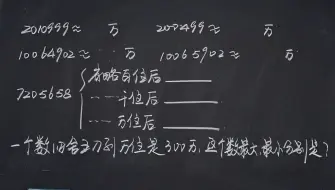 2010999≈ 万 200499≈ 万
10064902≈ 万 10065902≈ 万
7205658 { 省略百位后
┈┈千位后
┈┈万位后
一个数四舍五入到万位是300万,这个数最大、最小分别是?